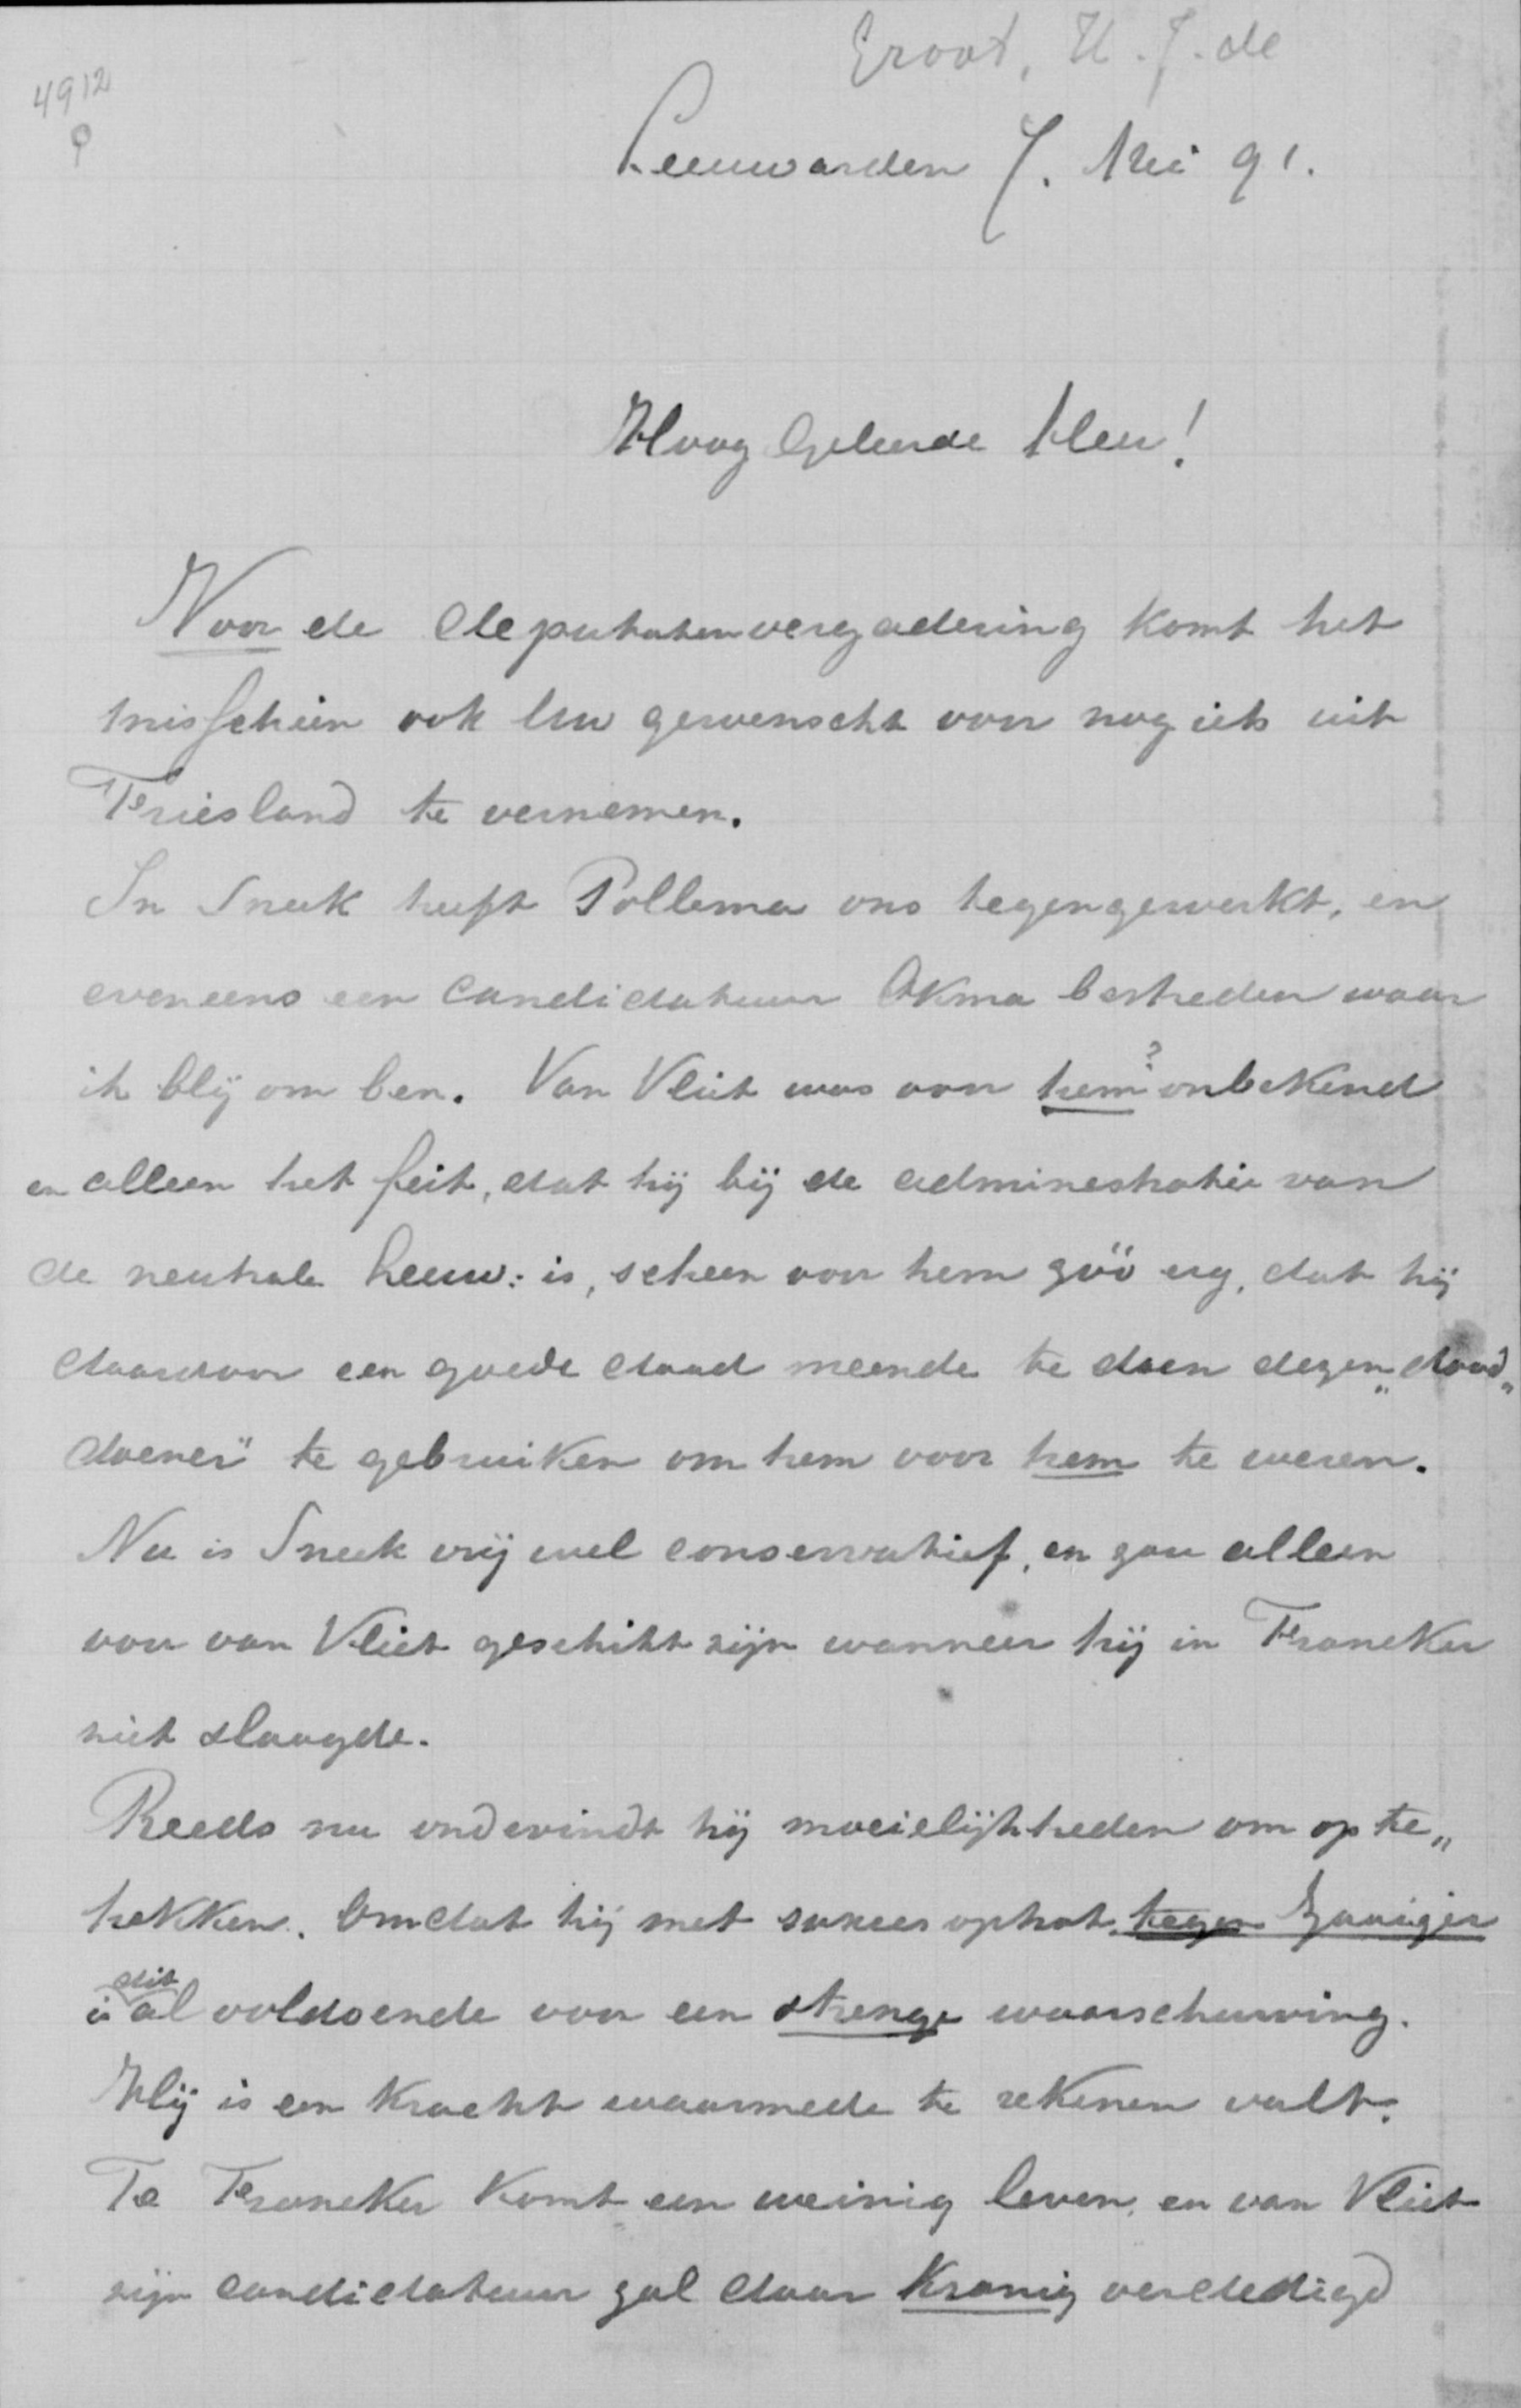 Groot, H. J. de
4912
Leeuwarden 7. Mei 91.
Hoog Geleerde Heer!
Voor de deputatenvergadering komt het
misschien ook Uw gewenscht voor nog iets uit
Friesland te vernemen.
In Sneek heeft Pollema ons tegengewerkt, en
eveneens een candidatuur Okma bestreden waar
ik blij om ben. Van Vliet was voor hem? onbekend
en alleen het feit, dat hij bij de administratie van
de neutrale Leeuw: is, scheen voor hem zóó erg, dat hij
daardoor een goede daad meende te doen dezen „dood„
doener" te gebruiken om hem voor hem te weren.
Nu is Sneek vrij wel conservatief, en zou alleen
voor van Vliet geschikt zijn wanneer hij in Franeker
niet slaagde.
Reeds nu ondervindt hij moeielijkheden om op te„
trekken. Omdat hij met succes optrad tegen
is dit al voldoende voor een strenge waarschuwing.
Hij is een kracht waarmede te rekenen valt.
Te Franeker komt een weinig leven, en van Vliet
zijn candidatuur zal daar kranig verdedigd